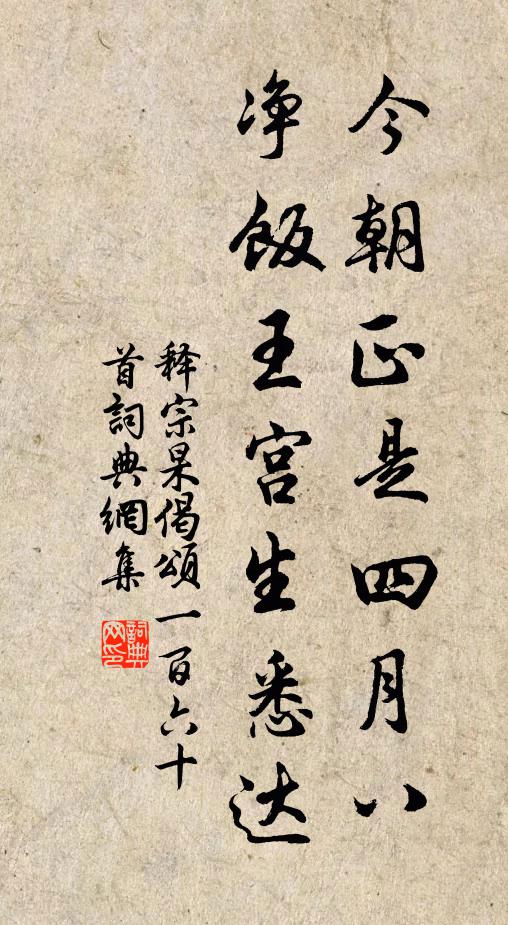 今朝正是四月八
净飯王宫生悉达
释宗杲偈頌一百六十
首詞典網集
詞典
网印